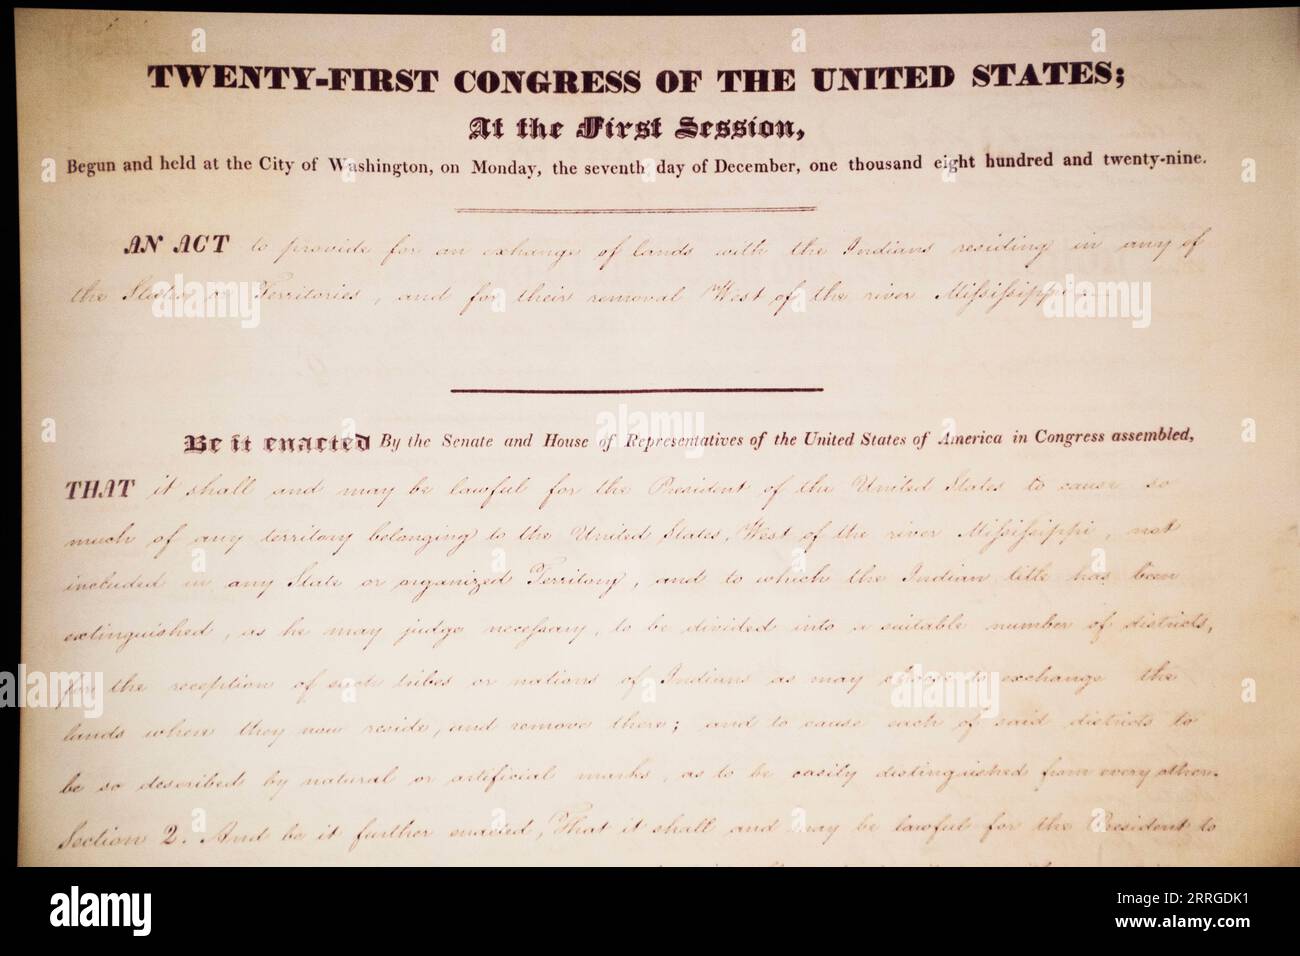 TWENTY-FIRST CONGRESS OF THE UNITED STATES;
At the First Session,
Begun and held at the City of Washington, on Monday, the seventh day of December, one thousand eight hundred and twenty-nine.
AN ACT to provide for an exchange of lands with the Indians residing in any of
the States or Territories, and for their removal West of the river Mississippi.
Be it enacted By the Senate and House of Representatives of the United States of America in Congress assembled,
THAT it shall and may be lawful for the President of the United States to cause so
much of any territory belonging to the United States, West of the river Mississippi, not
included in any State or organized Territory, and to which the Indian title has been
extinguished, as he may judge necessary, to be divided into a suitable number of districts,
for the reception of such tribes or nations of Indians as may choose to exchange the
lands where they now reside, and remove there; and to cause each of said districts to
be so described by natural or artificial marks, as to be easily distinguished from every other.
Section 2. And be it further enacted, That it shall and may be lawful for the President to
alamy
Image ID: 2RRGDK1
www.alamy.com